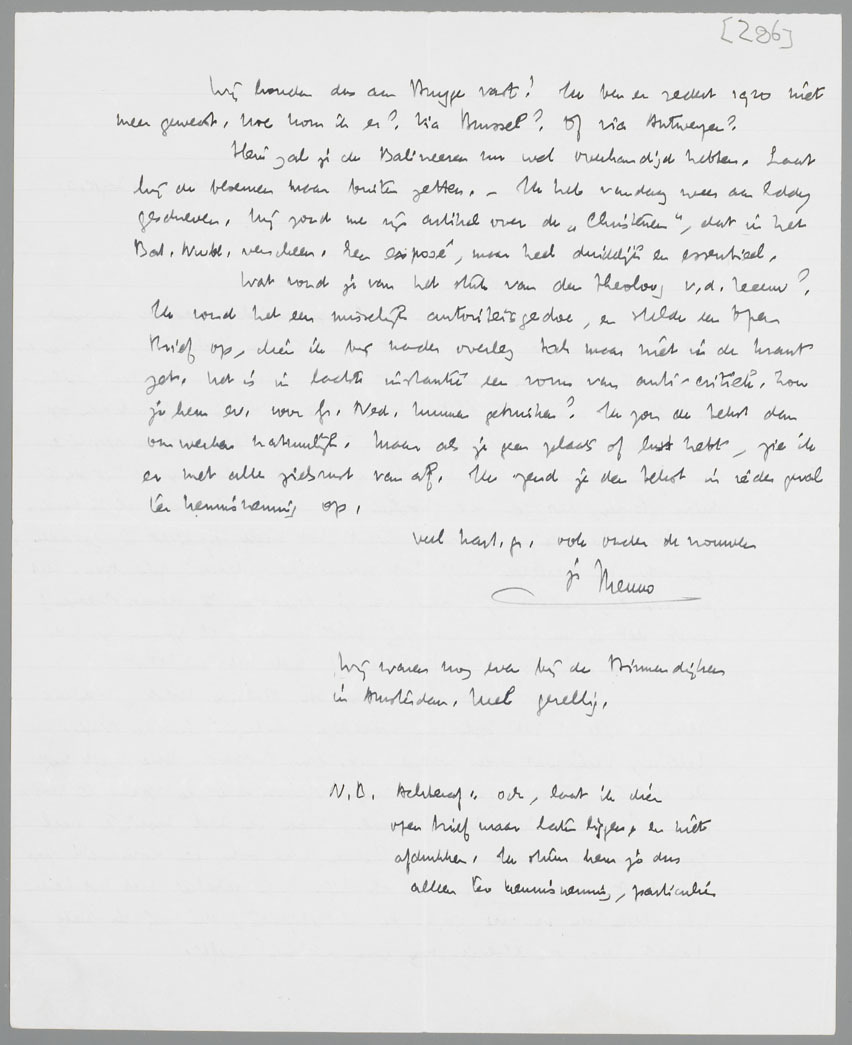 [286]
Wij houden dus aan Brugge vast! Ik ben er sedert 1920 niet
meer geweest, hoe kom ik er? Via Brussel? Of via Antwerpen?
Henri zal je de Balineezen nu wel overhandigd hebben. Laat
hij de bloemen maar buiten zetten. – Ik heb vandaag weer aan Eddy
geschreven. Hij zond me zijn artikel over de „Christenen", dat in het
Bat. Nwbl. verscheen. Een exposé, maar heel duidelijk en essentieel.
Wat vond je van het stuk van den theoloog v.d. Leeuw?
Ik vond het een misselijk autoriteitsgedoe, en stelde een open
brief op, dien ik bij nader overleg toch maar niet in de krant
zet. Het is in laatste instantie een vorm van anti-critiek. Zou
je hem ev. voor Gr. Ned. kunnen gebruiken? Ik zou de tekst dan
omwerken natuurlijk. Maar als je geen plaats of lust hebt, zie ik
er met alle zielsrust van af. Ik zend je den tekst in ieder geval
ter kennisneming op.
veel hart. gr. ook onder de vrouwen
je Menno
Wij waren nog even bij de Binnendijken
in Amsterdam. Heel gezellig.
N.B. Achteraf: och, laat ik dien
open brief maar laten liggen, en niet
afdrukken. Ik stuur hem je dus
alleen ter kennisneming, particulier